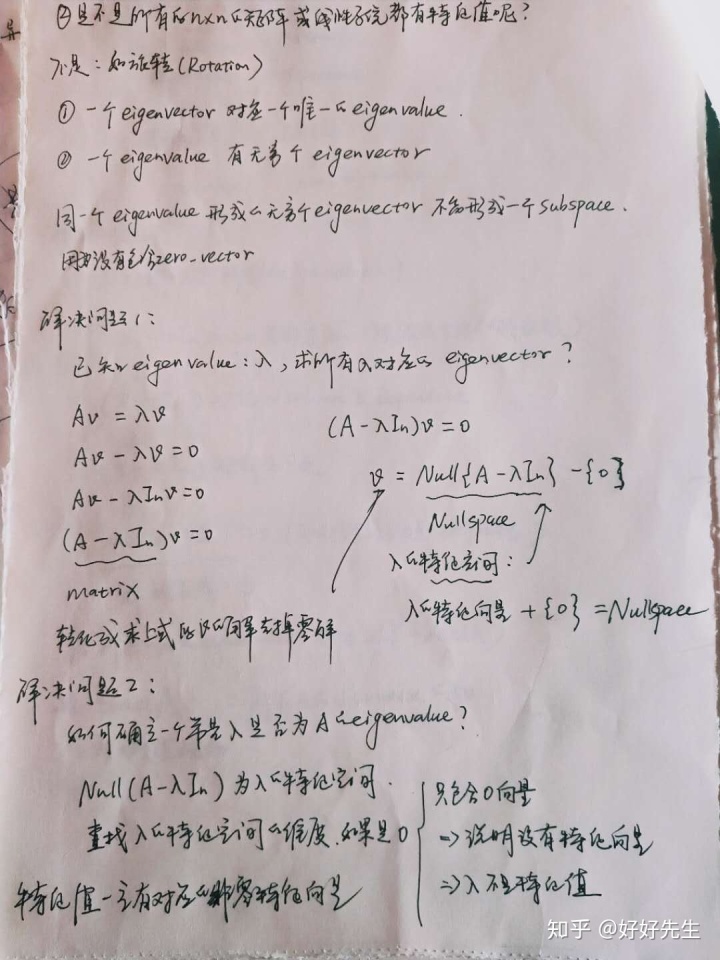 ②是不是所有的n×n的矩阵或线性系统都有特征值呢?
不是:如旋转(Rotation)
① 一个eigenvector 对应一个唯一的eigenvalue.
② 一个eigenvalue 有无穷个 eigenvector
同一个eigenvalue 形成的无穷个eigenvector 不能形成一个subspace.
因为没有包含zero-vector
解决问题1:
已知eigenvalue:λ,求所有的对应的 eigenvector?
Av = λv
Av - λv = 0
Av - λInv = 0
(A - λIn)v = 0
matrix
转化成求上式的v的解去掉零解
(A - λIn)v = 0
v = Null{A - λIn} - {0}
Nullspace
λ的特征空间:
λ的特征向量 + {0} = Nullspace
解决问题2:
如何确定一个常量λ是否为A的eigenvalue?
Null(A - λIn)为λ的特征空间.
查找λ的特征空间的维度.如果是0
只包含0向量
=> 说明没有特征向量
=> λ不是特征值
特征值一定有对应的非零特征向量
知乎 @好好先生